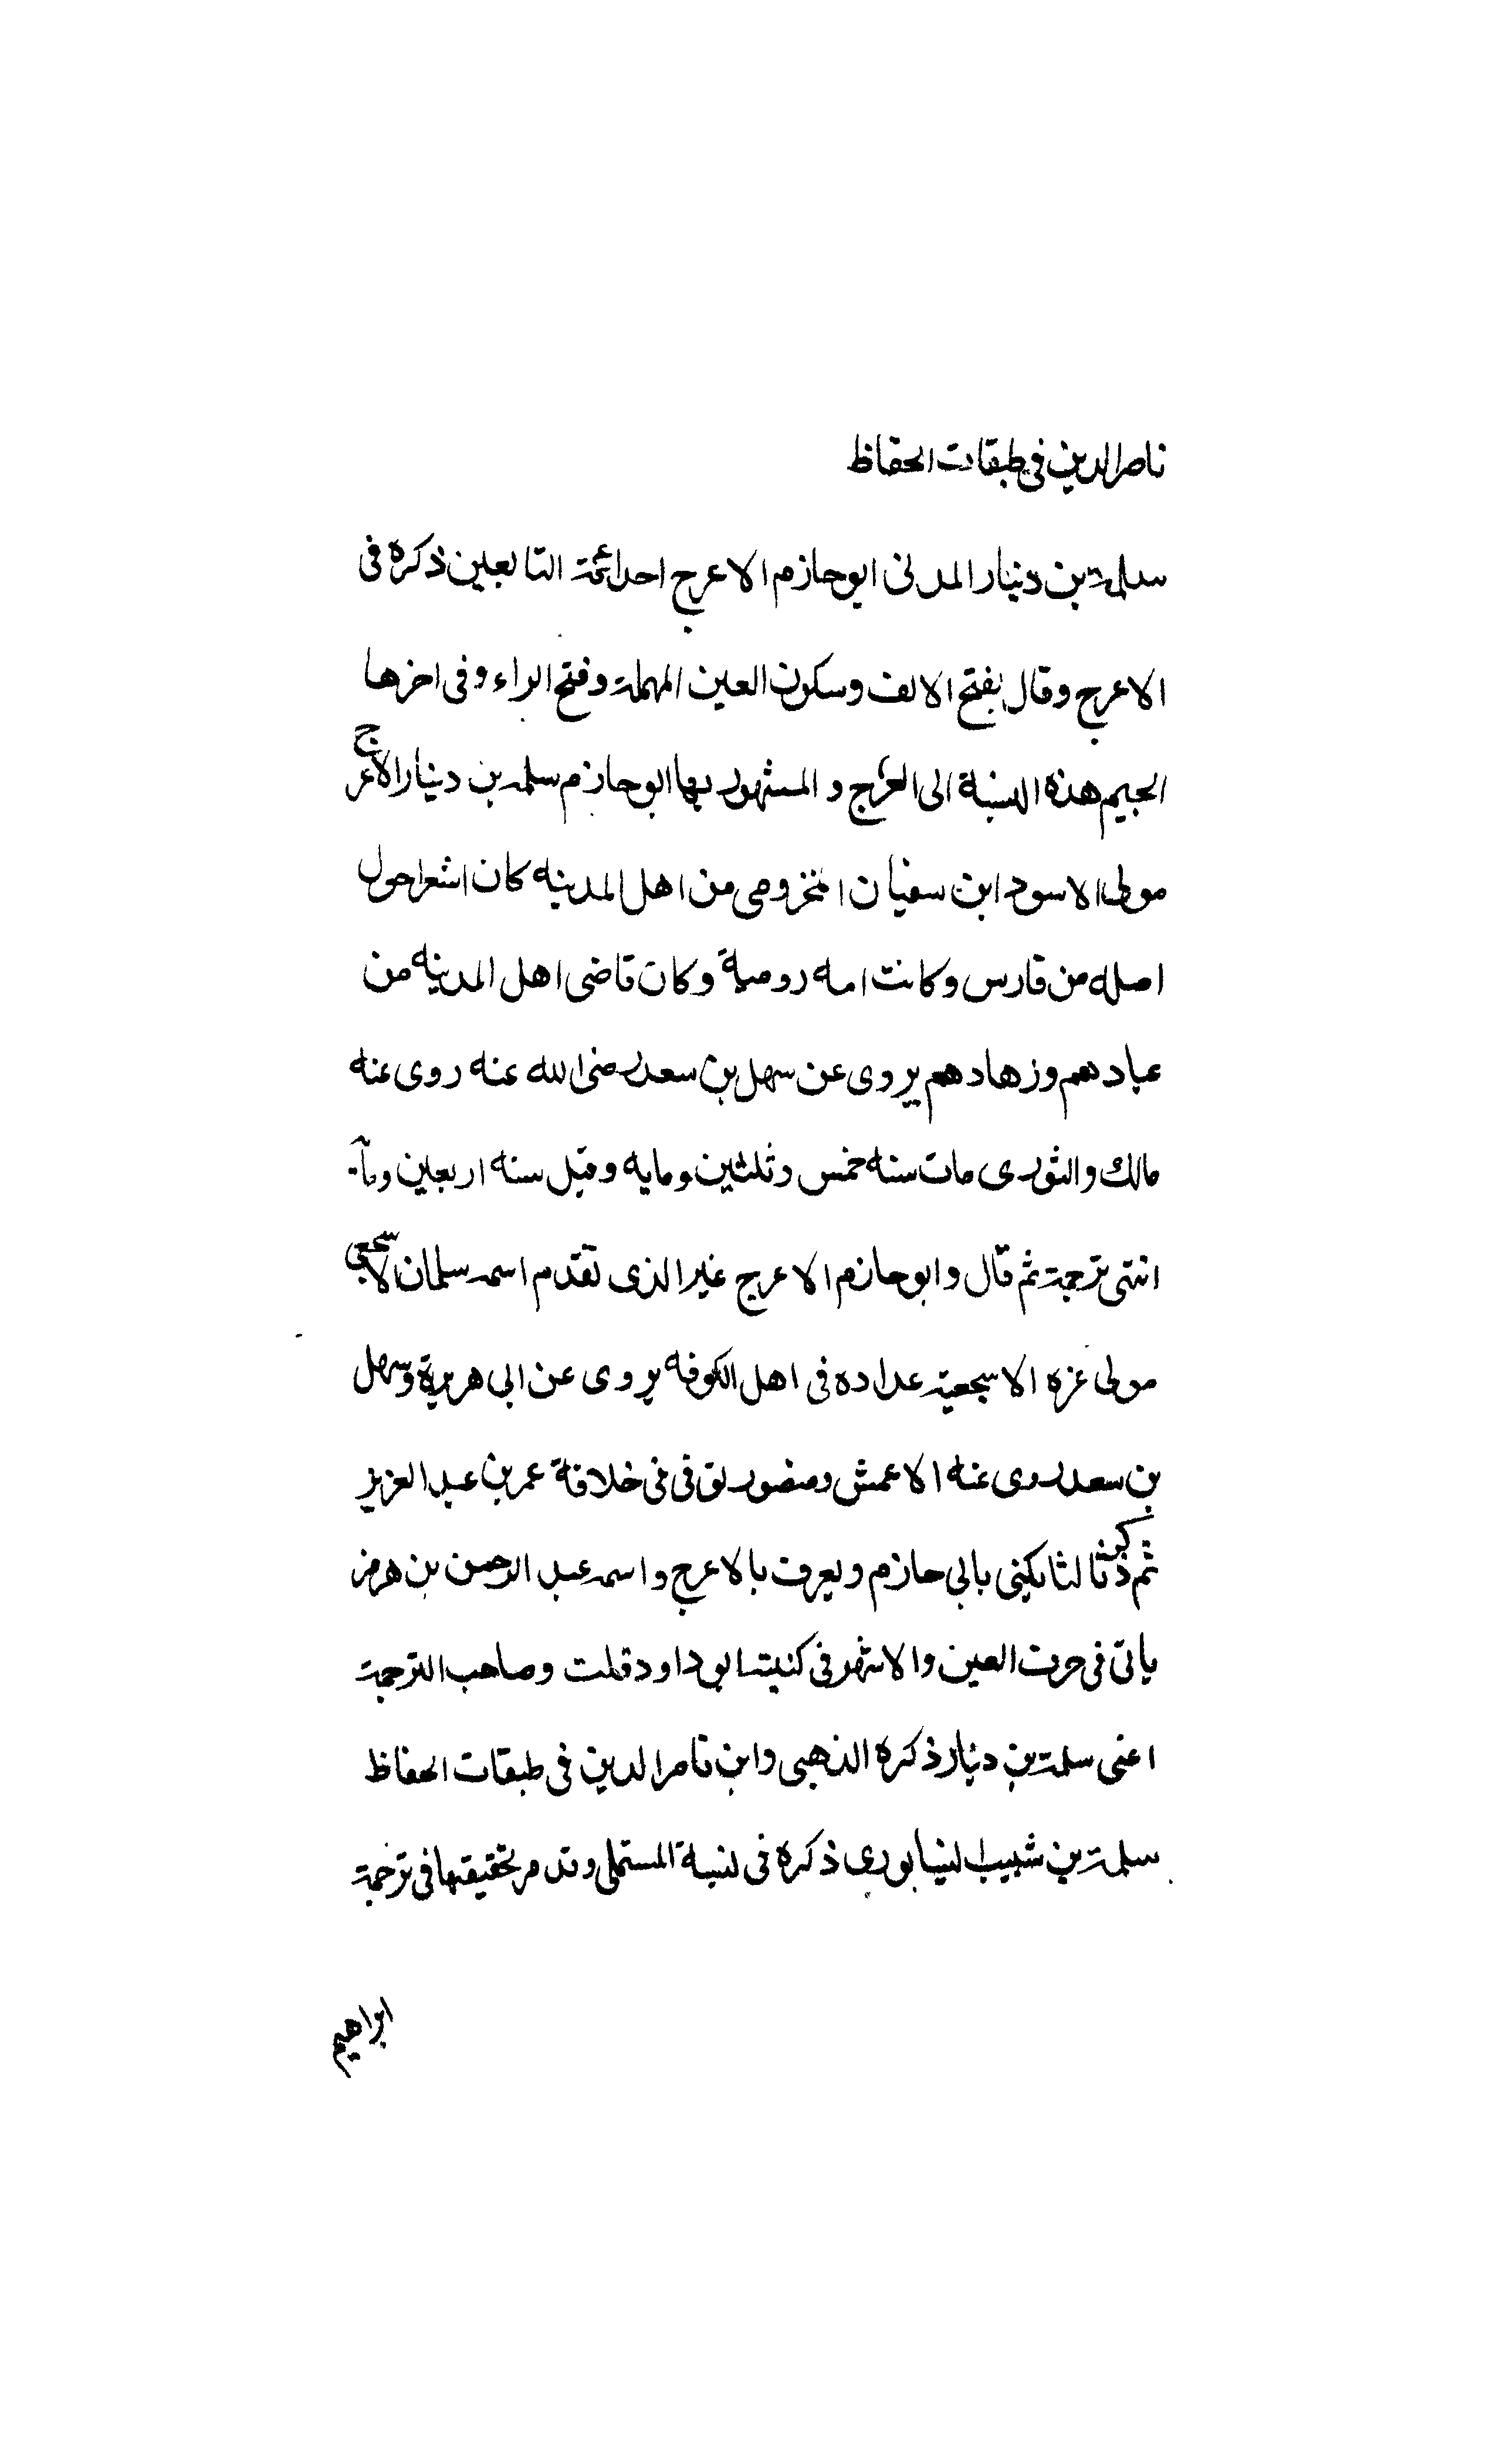 ناصر الدين فى طبقات الحفاظ
سلمة بن دينار المدنى ابو حازم الاعرج احد ائمة التابعين ذكره فى
الاعرج وقال بفتح الالف وسكون العين المهملة وفتح الراء وفى اخرها
الجيم هذه النسبة الى العرج والمشهور بها ابو حازم سلمه بن دينار الاعرج
مولى الاسود ابن سفيان المخزومى من اهل المدينه كان اشعر احول
اصله من فارس وكانت امه رومية وكان قاضى اهل المدينه من
عبادهم وزهادهم يروى عن سهل بن سعد رضى الله عنه روى عنه
مالك والثورى مات سنه خمس وثلثين ومايه وقيل سنه اربعين ومآة
انتهى ترجمة ثم قال وابو حازم الاعرج غير الذى تقدم اسمه سلمان الاشجعى
مولى عزه الاشجعية عداده فى اهل الكوفه يروى عن ابى هريرة وسهل
بن سعد روى عنه الاعمش ومنصور توفى فى خلافة عمر بن عبد العزيز
ثم ذكر ثالثا يكنى بابى حازم ويعرف بالاعرج واسمه عبد الرحمن بن هرمز
ياتى فى حرف العين والاشهر فى كنيته ابو داود قلت وصاحب الترجمة
اعنى سلمة بن دينار ذكره الذهبى وابن ناصر الدين فى طبقات الحفاظ
سلمة بن شبيب النيسابورى ذكره فى نسبة المستملى وقد مر تحقيقها فى ترجمة
ابراهيم